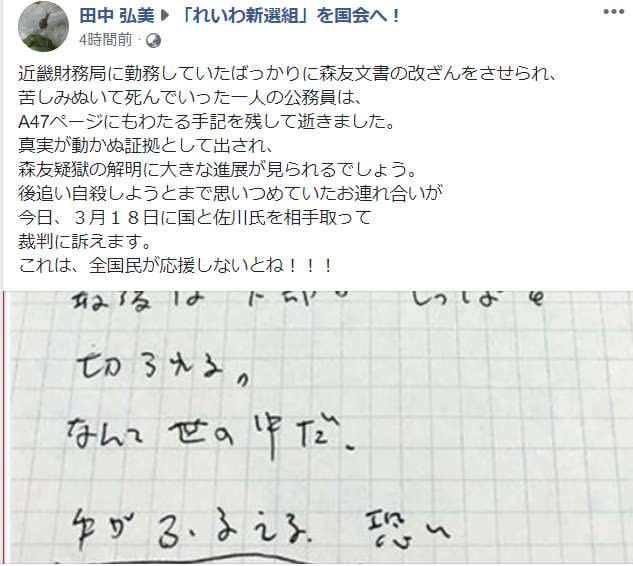 田中 弘美 ▶ 「れいわ新選組」を国会へ！
4時間前 ·
近畿財務局に勤務していたばっかりに森友文書の改ざんをさせられ、
苦しみぬいて死んでいった一人の公務員は、
A47ページにもわたる手記を残して逝きました。
真実が動かぬ証拠として出され、
森友疑獄の解明に大きな進展が見られるでしょう。
後追い自殺しようとまで思いつめていたお連れ合いが
今日、３月１８日に国と佐川氏を相手取って
裁判に訴えます。
これは、全国民が応援しないとね！！！
最後は下部がしっぽを
切られる。
なんて世の中だ、
手がふるえる、恐い